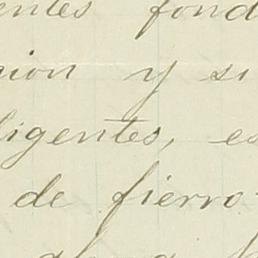 entes fond
cion y si
ligentes, es
de fierro